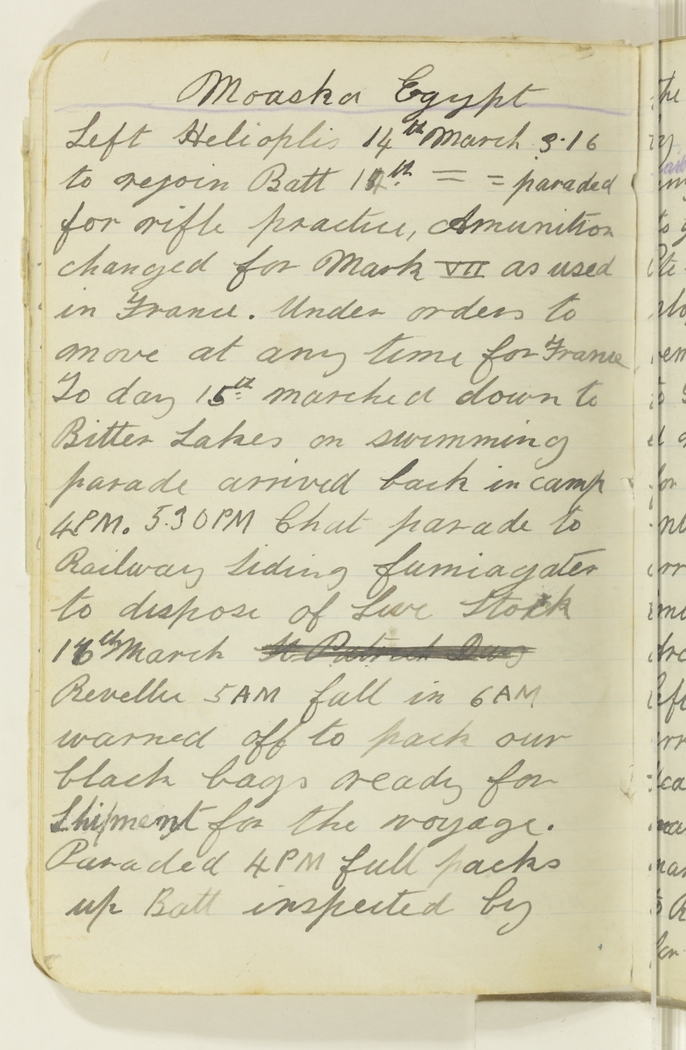 Moaska Egypt
Left Helioplis 14th March 3.16
to rejoin Batt 15th = = paraded
for rifle practice, Amunition
changed for Mark VII as used
in France. Under orders to
move at any time for France
To day 15th marched down to
Bitter Lakes on swimming
parade arrived back in camp
4PM. 5.30PM Chat parade to
Railway Siding fumiagater
to dispose of Live Stock
16th March St Patrick Day
Reveller 5AM fall in 6AM
warned off to pack our
black bags ready for
Shipment for the voyage.
Paraded 4PM full packs
up Batt inspected by